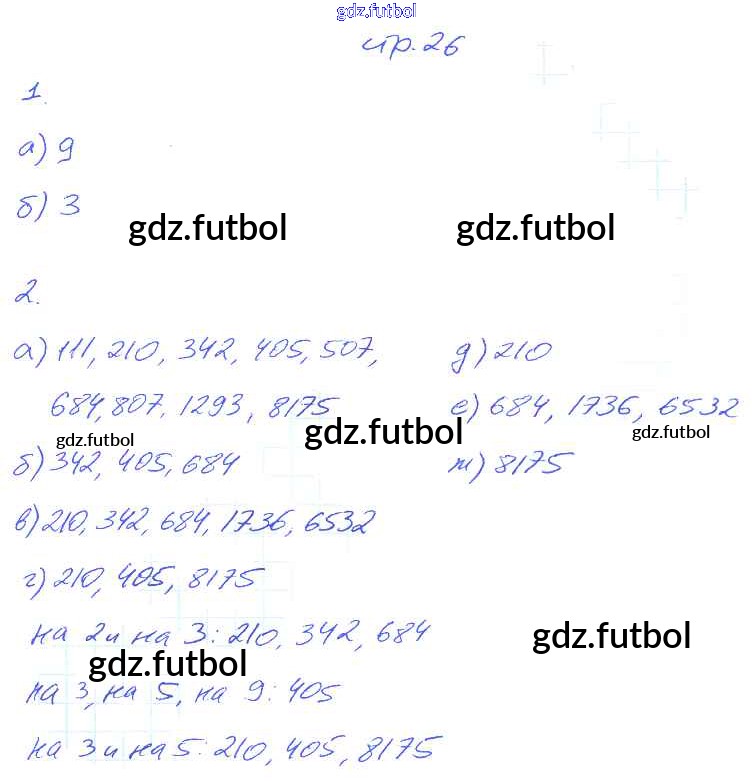 gdz.futbol
стр.26
1.
а) 9
б) 3
gdz.futbol gdz.futbol
2.
а) 111, 210, 342, 405, 507,
684, 807, 1293, 8175
gdz.futbol gdz.futbol gdz.futbol
б) 342, 405, 684
в) 210, 342, 684, 1736, 6532
г) 210, 405, 8175
на 2 и на 3: 210, 342, 684
gdz.futbol gdz.futbol
на 3, на 5, на 9: 405
на 3 и на 5: 210, 405, 8175
д) 210
е) 684, 1736, 6532
ж) 8175